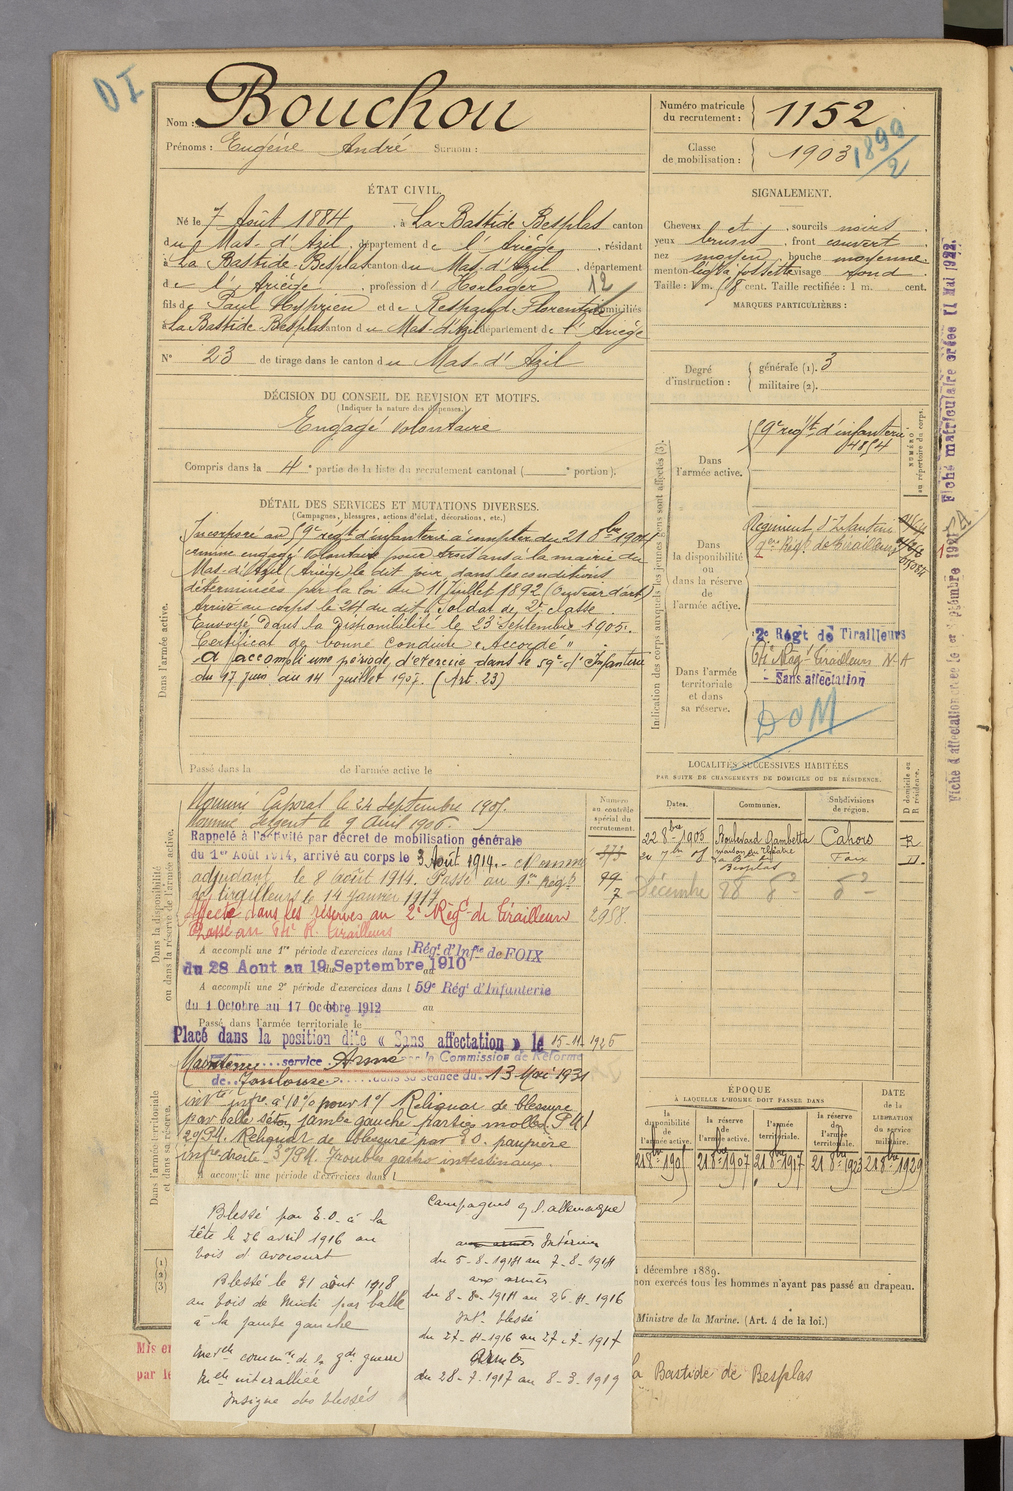 DI
Nom : Bouchou
Prénoms : Eugéne André Surnom :
Numéro matricule du recrutement : 1152
Classe de mobilisation : 1903
1899/2
ÉTAT CIVIL.
Né le 7 Août 1884, à La Bastide Besplas canton
du Mas-d'Azil, département de l'Ariége, résidant
à La Bastide-Besplas canton du Mas-d'Azil, département
de l'Ariége, profession d'Horloger
12
fils de Paul Cyprien et de Respaud Florentine domiciliés
à La Bastide-Besplas canton du Mas-d'Azil département de l'Ariége
N° 23 de tirage dans le canton du Mas-d'Azil
SIGNALEMENT.
Cheveux et sourcils noirs
yeux bruns, front couvert
nez moyen, bouche moyenne
menton fossette visage rond
Taille : 1 m. 58 cent. Taille rectifiée : 1 m. cent.
MARQUES PARTICULIÈRES :
Degré d'instruction : générale (1). 3
militaire (2).
DÉCISION DU CONSEIL DE REVISION ET MOTIFS.
(Indiquer la nature des dispenses.)
Engagé Volontaire
Compris dans la 4e partie de la liste du recrutement cantonal ( e portion).
DÉTAIL DES SERVICES ET MUTATIONS DIVERSES.
(Campagnes, blessures, actions d'éclat, décorations, etc.)
Dans l'armée active.
Incorporé au 59e régt d'infanterie à compter du 21 8bre 1904
comme engagé volontaire pour trois ans à la mairie du
Mas-d'Azil (Ariége) le dit jour dans les conditions
déterminées par la loi du 11 Juillet 1892 (Ouvrier d'art)
Arrivé au corps le 24 du dit. Soldat de 2e classe.
Envoyé dans la disponibilité le 23 Septembre 1905.
Certificat de bonne conduite "Accordé"
A accompli une période d'exercice dans le 59e d'Infanterie
du 17 juin au 14 juillet 1907. (Art. 23)
Passé dans la de l'armée active le
Indication des corps auxquels les jeunes gens sont affectés (3).
NUMÉRO au répertoire du corps.
Dans l'armée active.
59e régt d'infanterie
4854
Dans la disponibilité ou dans la réserve de l'armée active.
Régiment d'Infanterie
9me Régt de Tirailleurs
Dans l'armée territoriale et dans sa réserve.
2e Régt de Tirailleurs
Régt Tirailleurs N-A
- Sans affectation
DOM
Fiche matriculaire créée 11 Mai 1922.
LOCALITÉS SUCCESSIVES HABITÉES
PAR SUITE DE CHANGEMENTS DE DOMICILE OU DE RÉSIDENCE.
Dates.
Communes.
Subdivisions de région.
D domicile ou R résidence.
22 8bre 1905 Boulevard Gambetta Cahors R
maison du théâtre
La Bde de Besplas Foix D
Décembre 28
Dans la disponibilité ou dans la réserve de l'armée active.
Numéro au contrôle spécial du recrutement.
Nommé Caporal le 24 Septembre 1905.
Nommé Sergent le 9 Avril 1906.
Rappelé à l'activité par décret de mobilisation générale
du 1er Août 1914, arrivé au corps le 3 Août 1914. Nommé
adjudant le 8 août 1914. Passé au 9me Régt
de tirailleurs le 14 janvier 1917
Affecté dans les réserves au 2e Régt de Tirailleurs
2958
Passé au R. Tirailleurs
A accompli une 1re période d'exercices dans l Régt d'Infie de FOIX
du 28 Aout au 19 Septembre 1910
A accompli une 2e période d'exercices dans l 59e Régt d'Infanterie
du 1 Octobre au 17 Octobre 1912 au
Passé dans l'armée territoriale le
Placé dans la position dite « Sans affectation » le 15-11-1926
Dans l'armée territoriale et dans sa réserve.
Maintenu service Armé par la Commission de Réforme
de Toulouse dans sa séance du 13 Mai 1931
à 10 % pour 1°) Reliquat de blessure
par balle séton jambe gauche parties molles
2°) Reliquat de blessure par E.O. paupière
infre droite. 3°) Troubles gastro intestinaux.
A accompli une période d'exercices dans l
ÉPOQUE
À LAQUELLE L'HOMME DOIT PASSER DANS
la disponibilité de l'armée active.
la réserve de l'armée active.
l'armée territoriale.
la réserve de l'armée territoriale.
DATE de la LIBÉRATION du service militaire.
21 8bre 1905
21 8bre 1907
21 8bre 1917
21 8bre 1923
21 8bre 1929
(1)
(2)
(3)
décembre 1889.
non exercés tous les hommes n'ayant pas passé au drapeau.
Ministre de la Marine. (Art. 4 de la loi.)
Blessé par E.O. à la
tête le 26 avril 1916 au
bois d'avocourt
Blessé le 31 août 1918
au bois de par balle
à la jambe gauche
Melle comm.ve de la gde guerre
Melle interalliée
Insigne des blessés
Campagnes c/ l'allemagne
aux armées Intérieur
du 5-8-1914 au 7-8-1914
aux armées
du 8-8-1914 au 26-11-1916
Intr blessé
du 27-11-1916 au 27-7-1917
Armées
du 28-7-1917 au 8-3-1919
Mis en
par le
La Bastide de Besplas